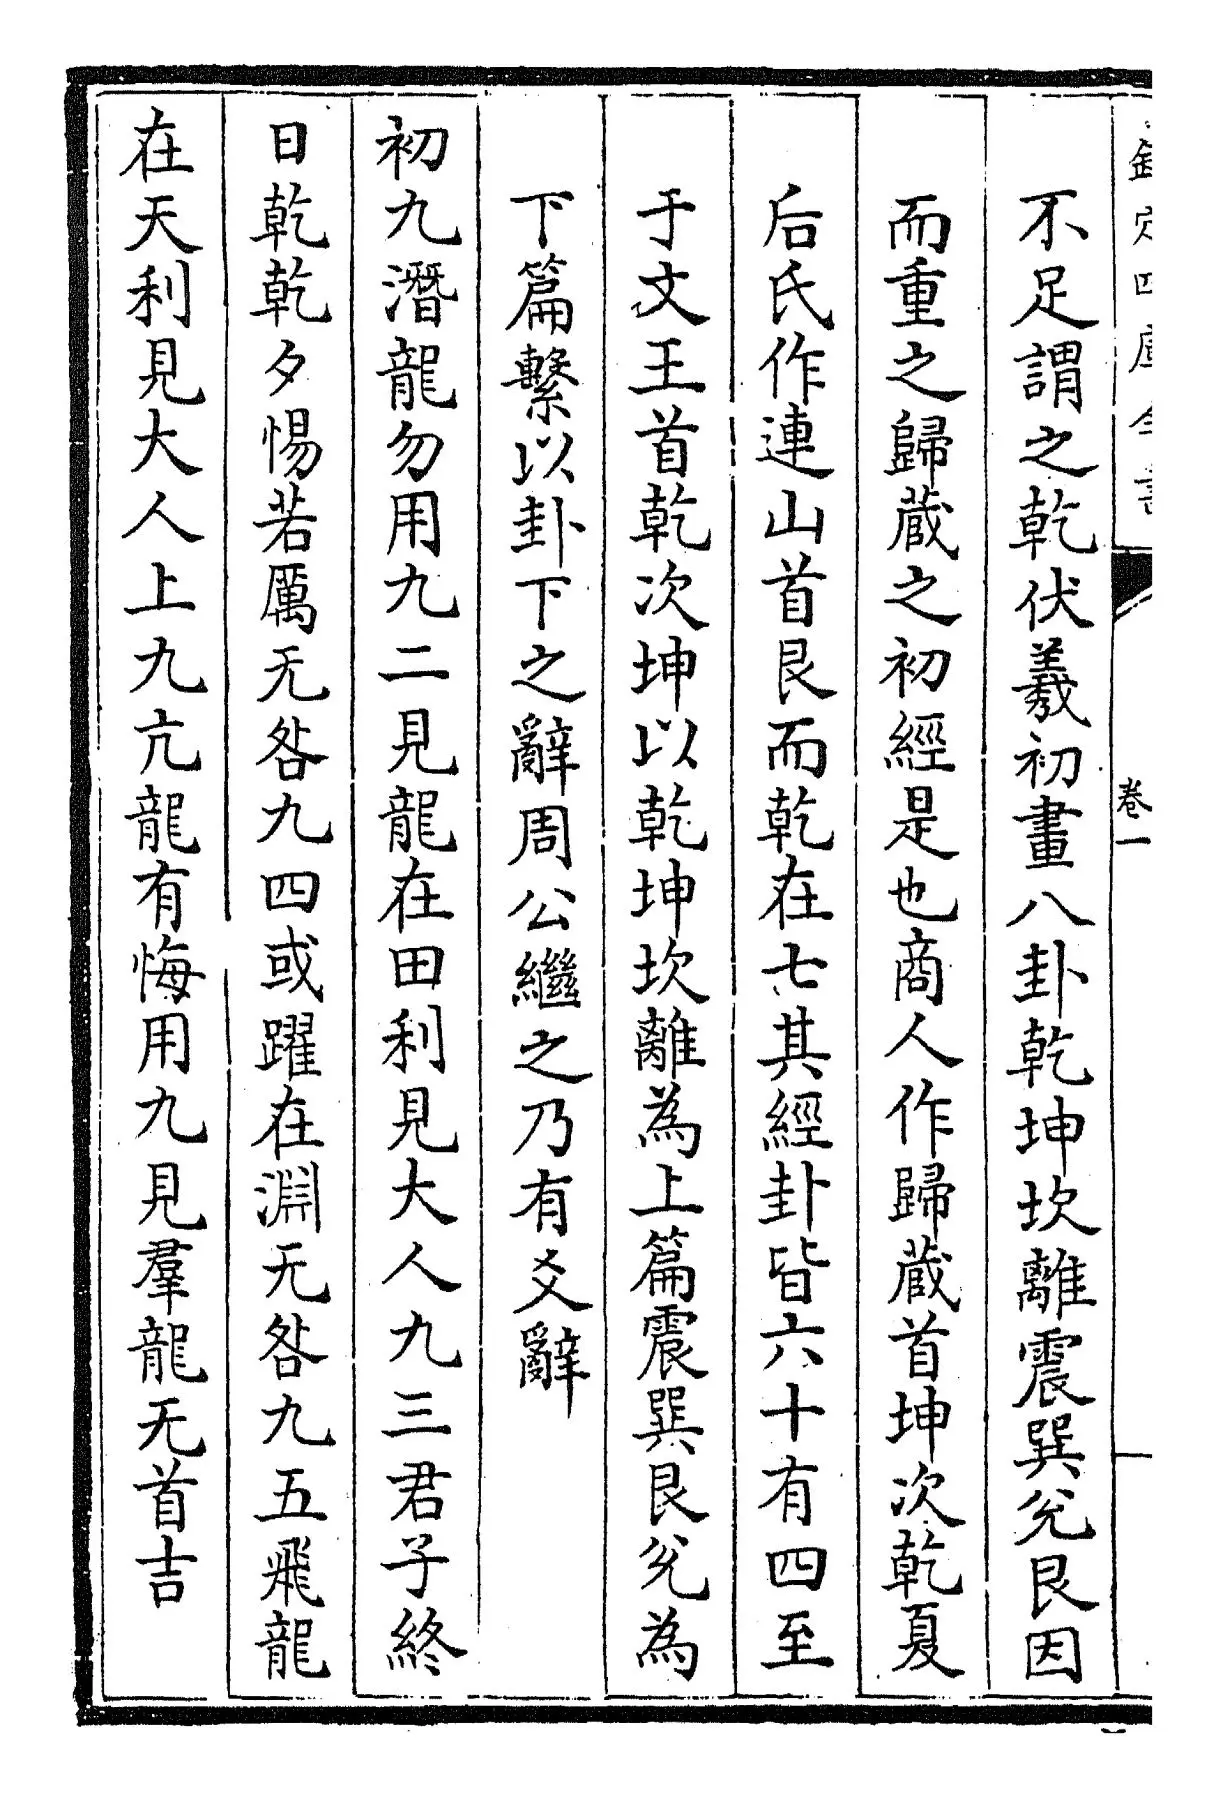 欽定四庫全書
卷一
不足謂之乾伏羲初畫八卦乾坤坎離震巽兊艮因
而重之歸蔵之初經是也商人作歸蔵首坤次乾夏
后氏作連山首艮而乾在七其經卦皆六十有四至
于文王首乾次坤以乾坤坎離為上篇震巽艮兊為
下篇繫以卦下之辭周公繼之乃有爻辭
初九潛龍勿用九二見龍在田利見大人九三君子終
日乾乾夕惕若厲无咎九四或躍在淵无咎九五飛龍
在天利見大人上九亢龍有悔用九見羣龍无首吉